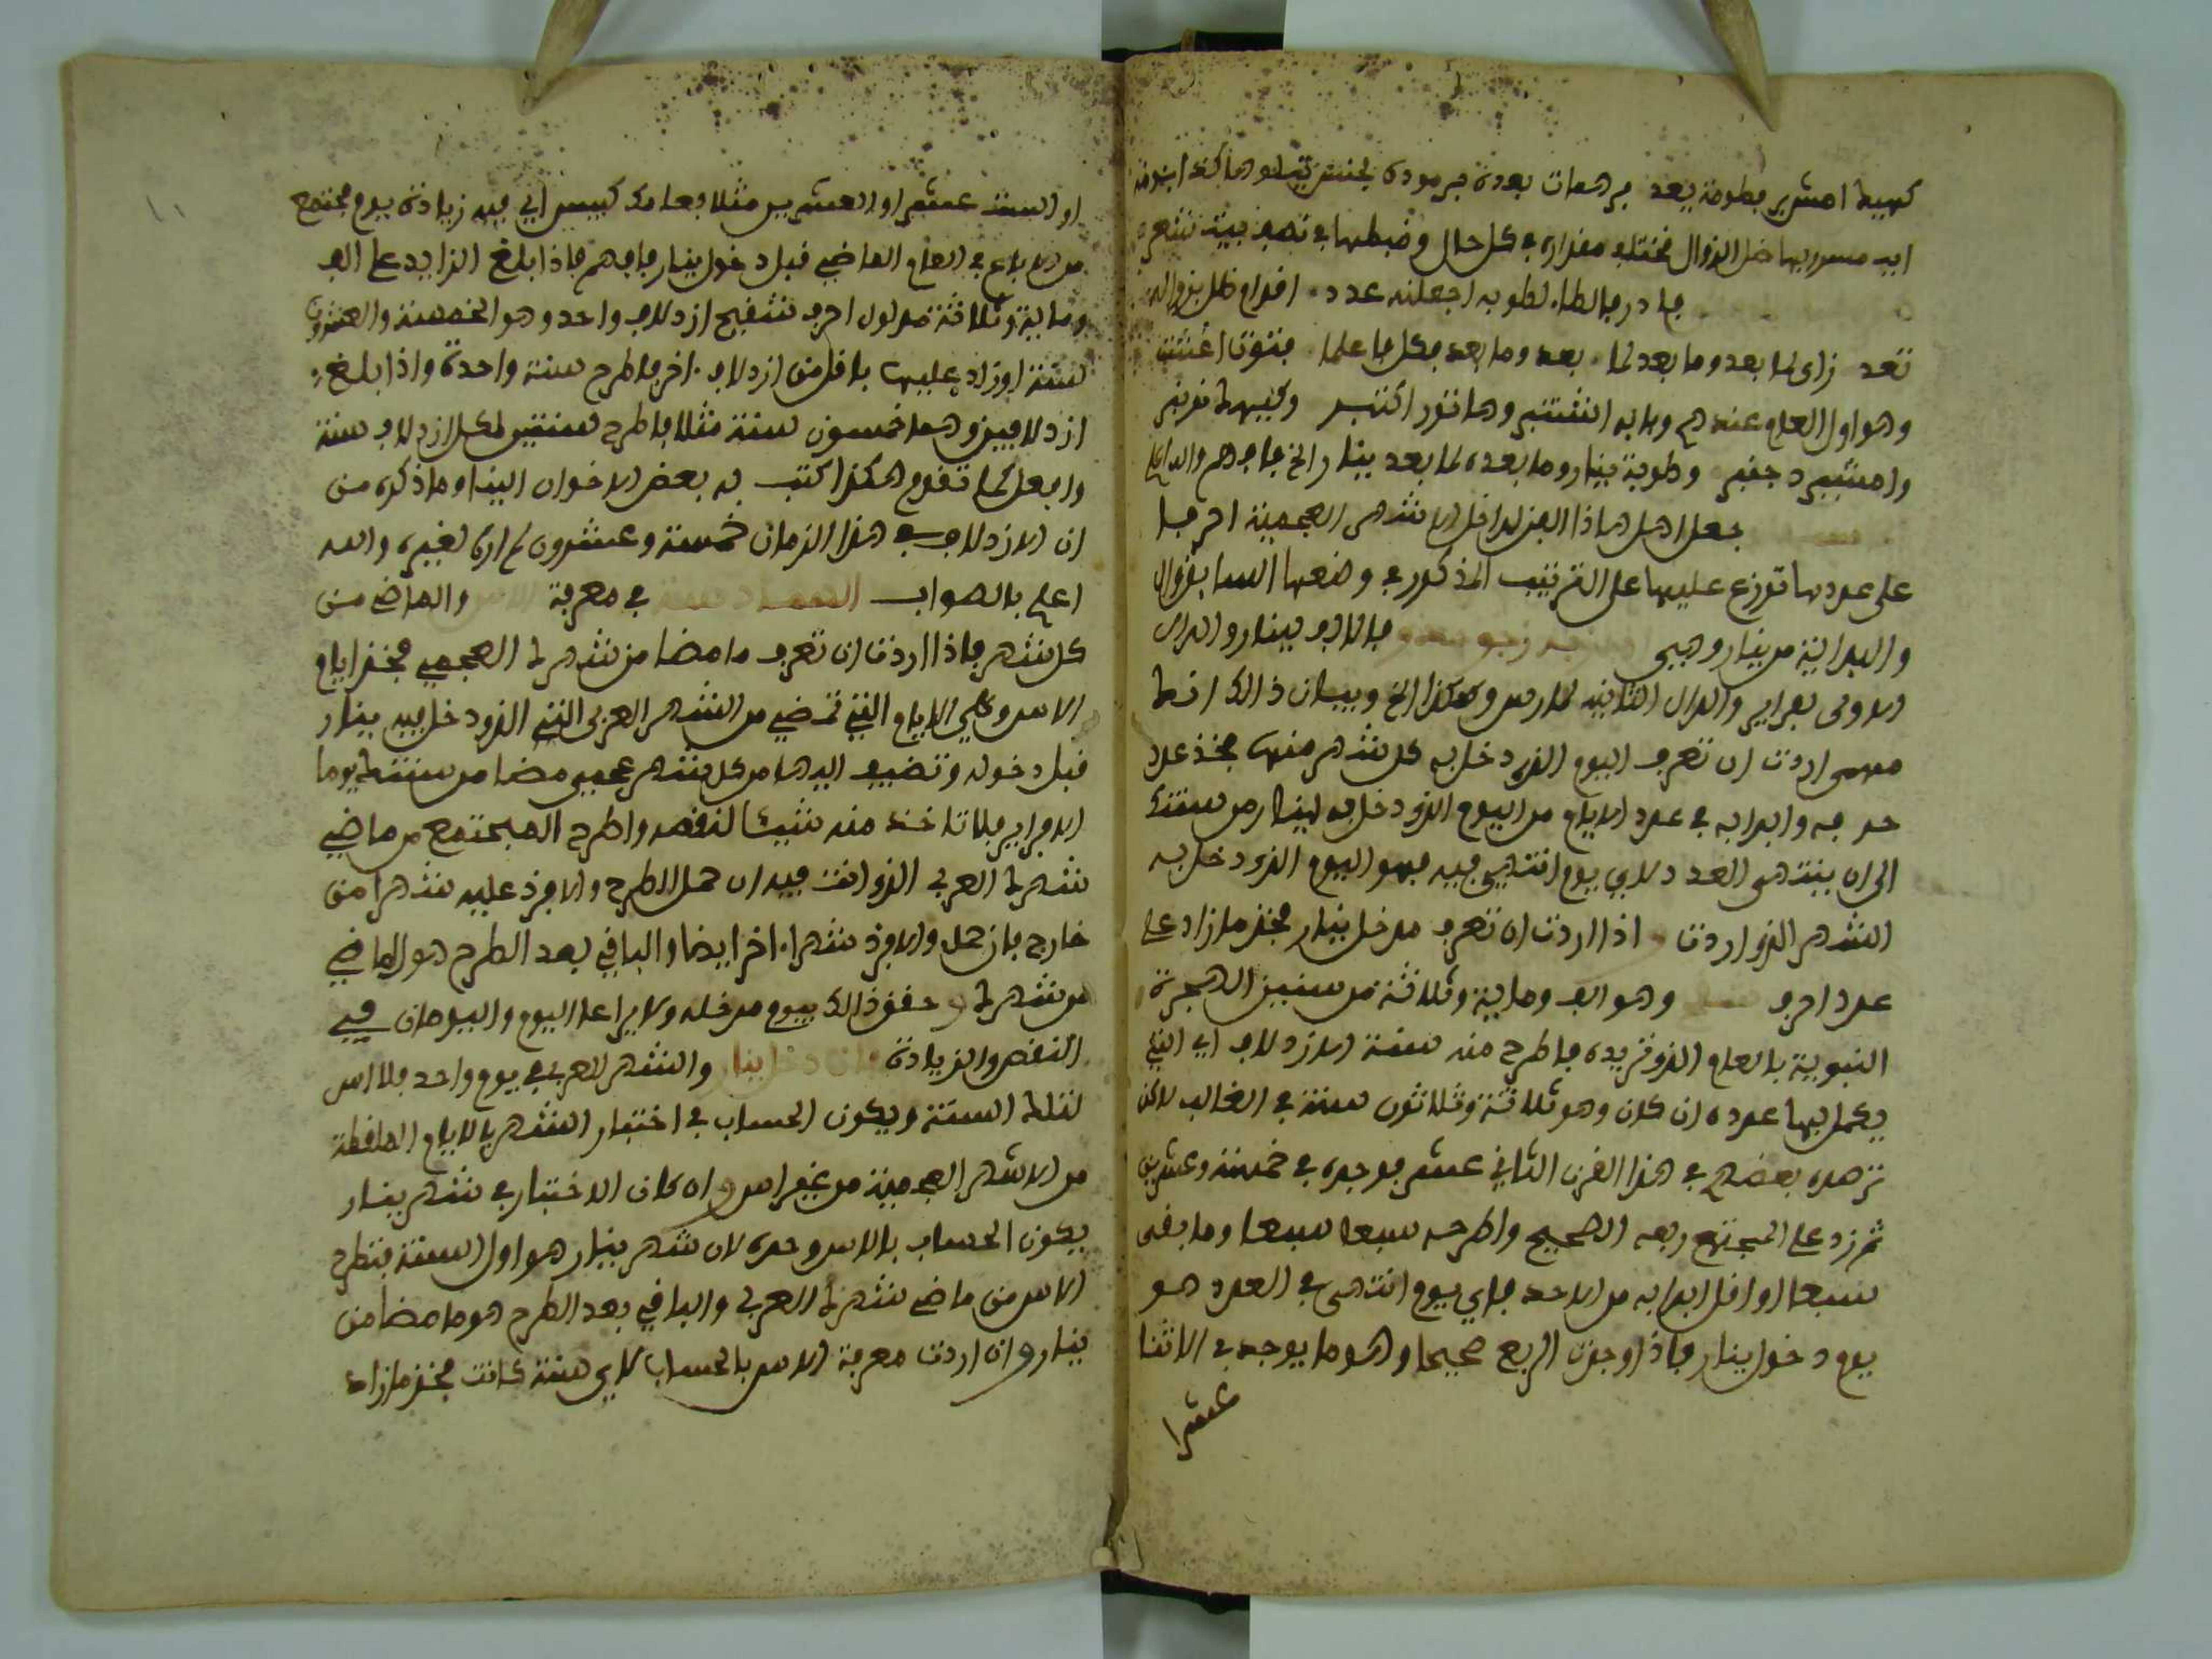 كهيط امشير بطوبة يعد برهمات بعده برمودة بشنش
ابيب مسرى بها ظل الزوال مختلف مقداره في كل حال وضبطها في نصف بيت
فادر فالطاء لطوبه اجعلنه عدد اقدام ظل
تعد زاي لما بعد وما بعد لما بعد وما بعد فكل فاعلما فتوت اغشت
وهو اول العام عندهم وبابه اشتنبر وهاتور اكتبر وكيهط نونبر
وامشير دجنبر وطوبة ينار وما بعده لما بعد ينار الخ فافهم والله اعلم
جعل اهل هاذا الفن لمداخل الاشهر العجمية احرفا
على عددها توزع عليها على الترتيب المذكور في وضعها السابق وان
والبداية من ينار وهي فالالف لينار والدال
الاولى لفراير والدال الثانية لمارس وهكذا الخ وبيان ذالك انك
مهمى اردت ان تعرف اليوم الذي دخل به كل شهر منها فخذ عدد
حرفه وابدا به في عدد الايام من اليوم الذي دخل به لينار من سنتك
الى ان ينتهى العدد لاي يوم انتهى فيه فهو اليوم الذي دخل به
الشهر الذي اردت اذا اردت ان تعرف مدخل ينار فخذ ما زاد على
عدد احرف وهو الف وماية وثلاثة من سنين الهجرة
النبوية بالعام الذي تريده فاطرح منه سنة الازدلاف اي التي
يكمل بها عدده ان كان وهو ثلاثة وثلاثون سنة في الغالب لاكن
نزهده بعضهم في هذا القرن الثاني عشر فوجده في خمسة وعشرين
ثم زد على المجتمع ربعه الصحيح واطرحه سبعا سبعا وما بقى
سبعا او اقل ابدا به من الاحد فاي يوم انتهى في العدد هو
يوم دخول ينار فاذا وجدت الربع صحيحا وهو ما يوجد في الاثنا
عشرا
او الستة عشر او العشرين مثلا فعامك كبيس اي فيه زيادة يوم مجتمع
من الارباع في العام الماضي قبل دخول ينار فافهم فاذا بلغ الزايد على الف
وماية وثلاثة مدلول احرف ازدلاف واحد وهو الخمسة والعشرون
سنة او زاد عليها باقل من ازدلاف اخر فاطرح سنة واحدة واذا بلغ
ازدلافين وهما خمسون سنة مثلا فاطرح سنتين لكل ازدلاف سنة
وافعل كما تقدم هكذا كتب به بعض الاخوان الينا وما ذكره من
ان الازدلاف في هذا الزمان خمسة وعشرون لم اره لغيره والله
اعلم بالصواب في معرفة الاس والماضي من
كل شهر فاذا اردت ان تعرف ما مضا من شهرك العجمي فخذ ايام
الاس وهي الايام التي تمضي من الشهر العربي الذي دخل فيه ينار
قبل دخوله وتضيف اليها من كل شهر عجمي مضا من سنتك يوما
الا فراير فلا تاخذ منه شيئا لنقصه واطرح المجتمع من ماضي
شهرك العربي الذي انت فيه ان حمل الطرح والا فزد عليه شهرا من
خارج فان حمل والا فزد شهرا اخر ايضا والباقي بعد الطرح هو الماضي
من شهرك وحقق ذالك بيوم مدخله ولا يراعا اليوم واليومان في
النقص والزيادة وان دخل ينار والشهر العربي في يوم واحد فلا اس
لتلك السنة ويكون الحساب في اختبار الشهر بالايام الملقطة
من الاشهر العجمية من غير اس وان كان الاختبار في شهر ينار
يكون الحساب بالاس وحده لان شهر ينار هو اول السنة فتطرح
الاس من ماضي شهرك العربي والباقي بعد الطرح هو ما مضا من
ينار وان اردت معرفة الاس بالحساب لاي سنة كانت فخذ ما زاد